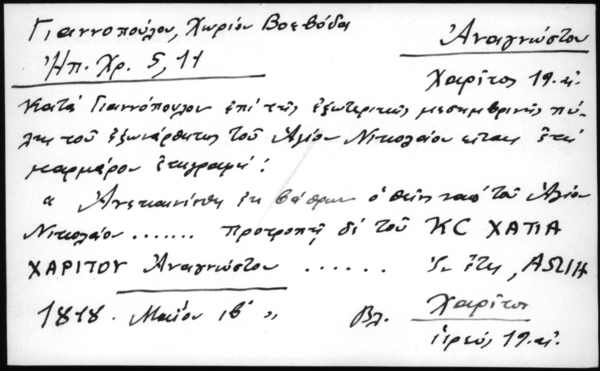 Γιαννοπούλου, Χωρίον Βοεβόδα
Ἀναγνώστου
Ἠπ. Χρ. 5, 11
Χαρίτος 19.αἰ.
Κατὰ Γιαννόπουλον ἐπὶ τῆς ἐξωτερικῆς μεσημβρινῆς πύ-
λης τοῦ ἐξωνάρθηκος τοῦ Ἁγίου Νικολάου εἶναι ἐπὶ
μαρμάρου ἐπιγραφή:
« Ἀνεκαινίσθη ἐκ βάθρων ὁ θεῖος ναὸς τοῦ Ἁγίου
Νικολάου ....... προτροπῇ δὲ τοῦ ΚC ΧΑΤΙΑ
ΧΑΡΙΤΟΥ Ἀναγνώστου ...... ἐν ἔτει, ΑΩΙΗ
1818. Μαΐου ιβ´ »
Βλ. Χαρίτος
ἱερεύς 19.αἰ.